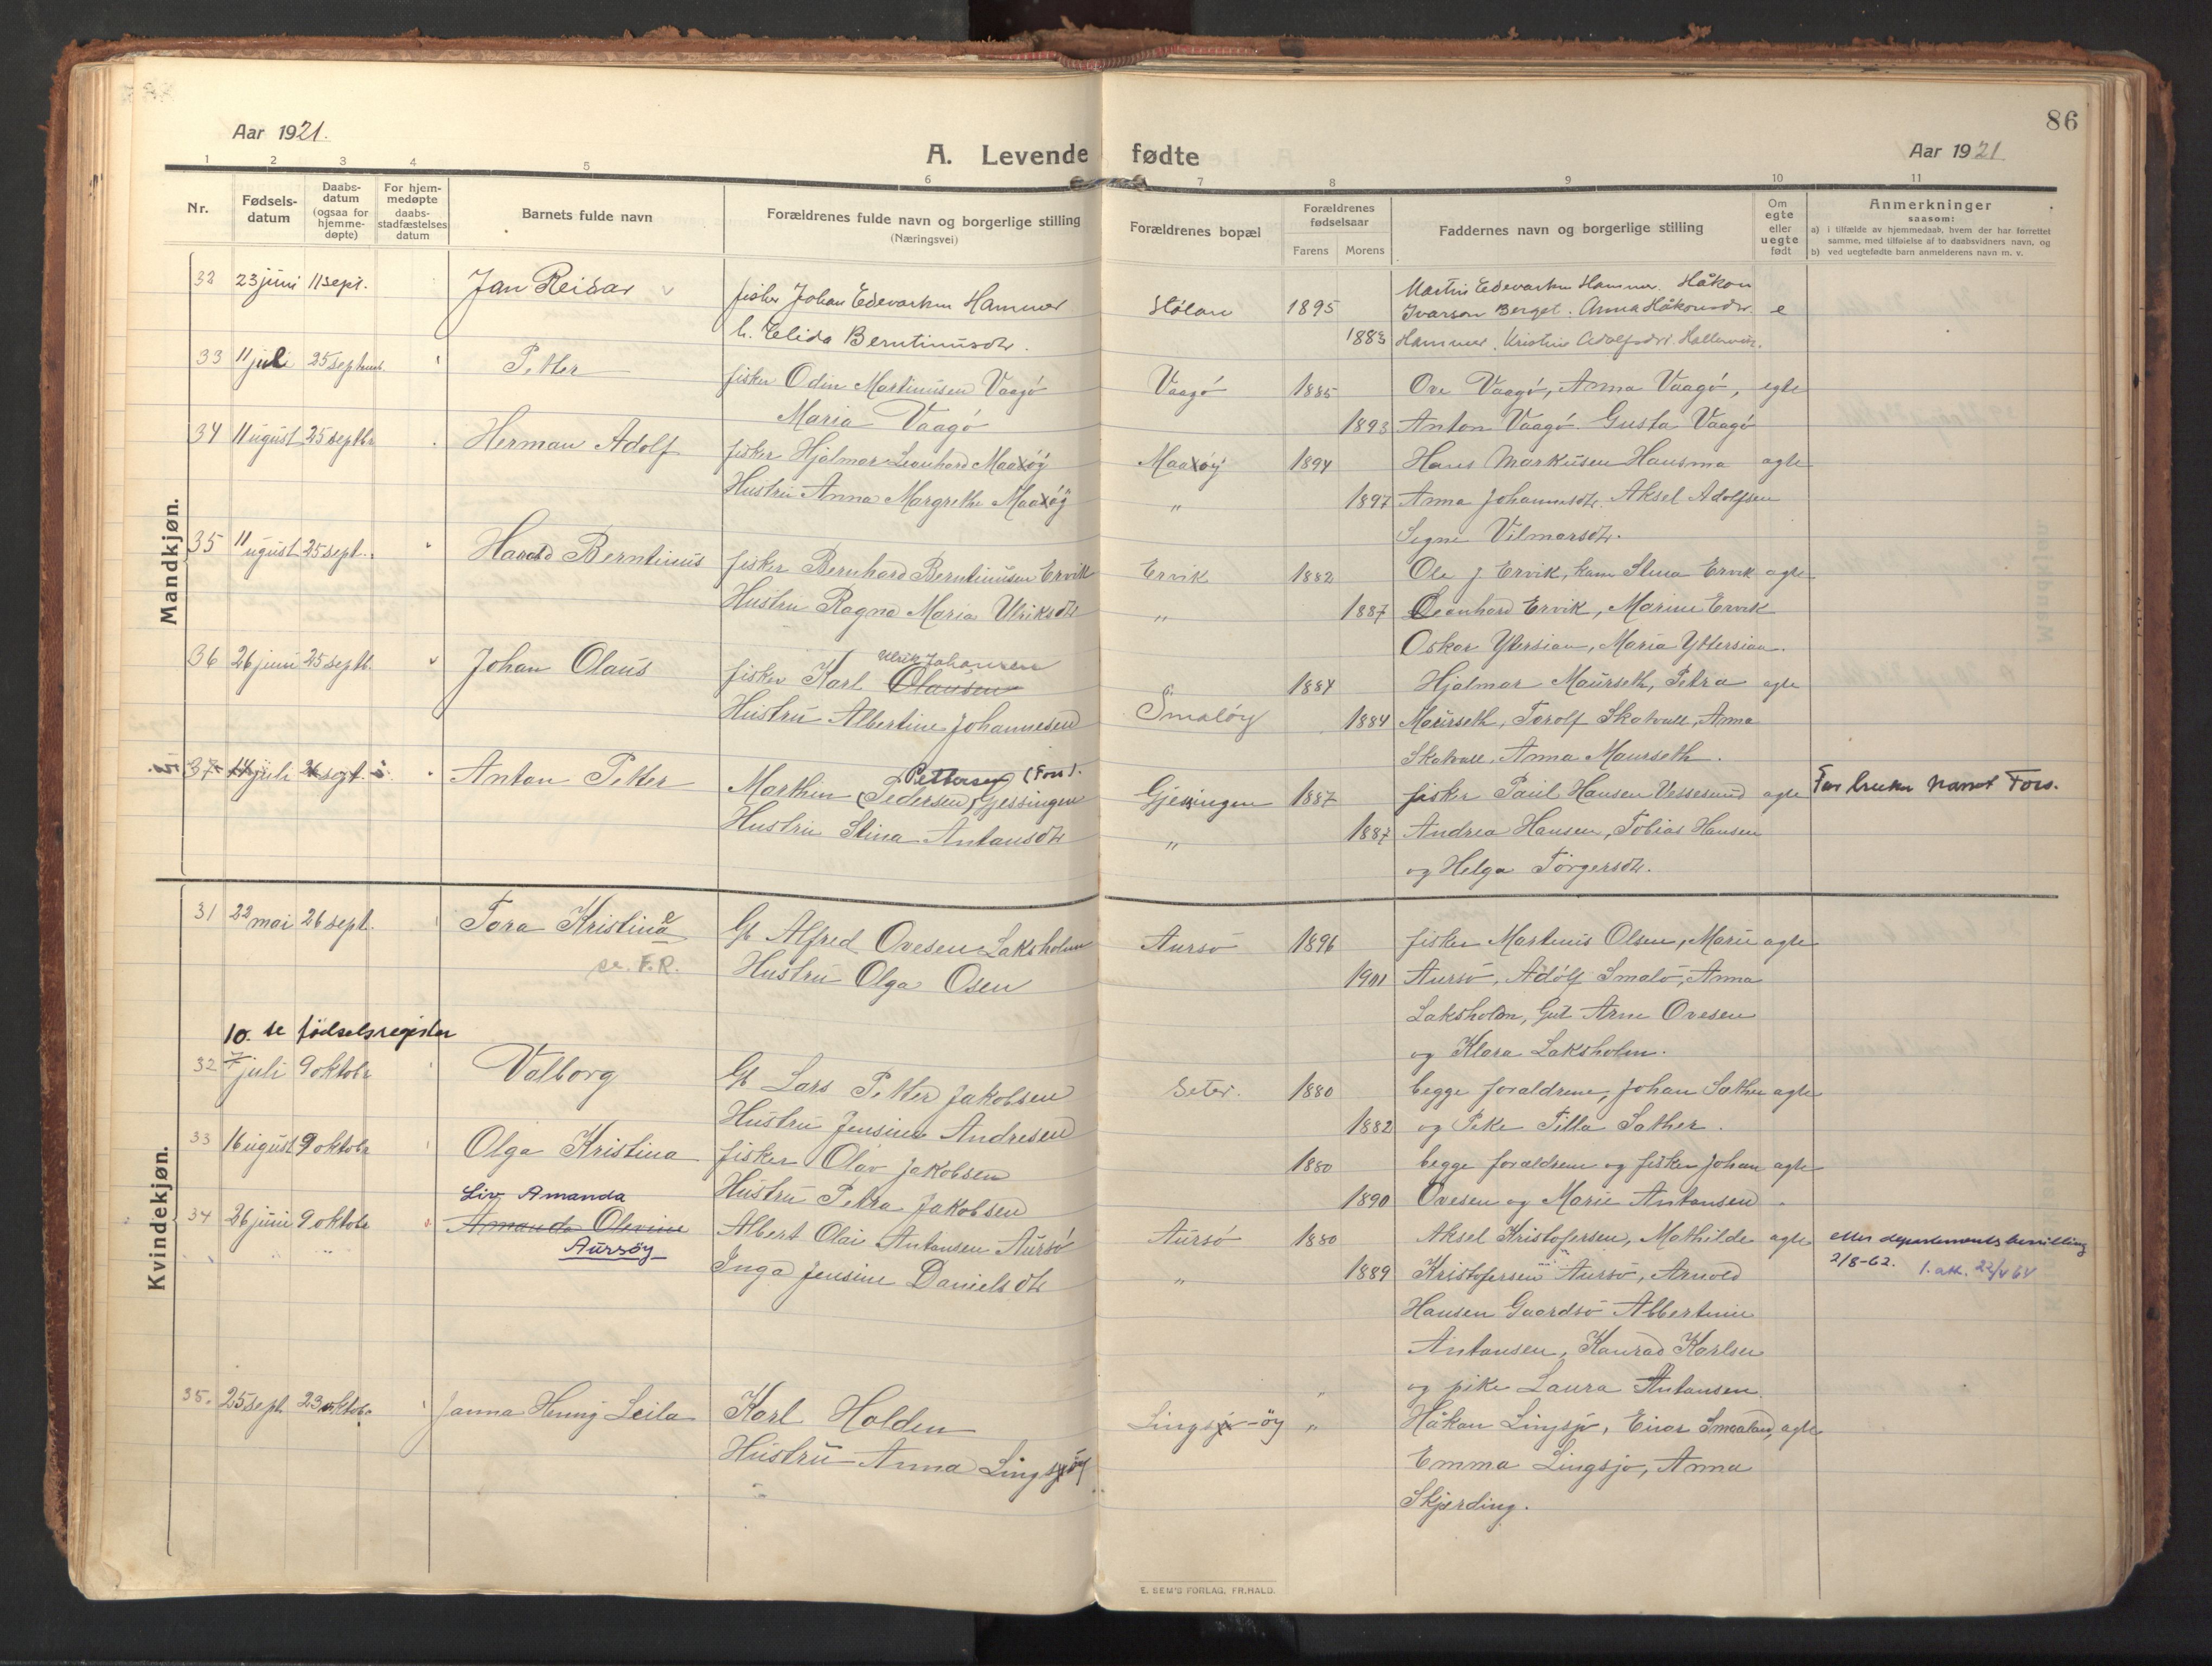 86
Aar 1921.
A. Levende fødte
Aar 1921
1 2 3 4 5 6 7 8 9 10 11
Nr.
Fødsels-
datum
Daabs-
datum
(ogsaa for
hjemme-
døpte)
For hjem-
medøpte
daabs-
stadfæstelses
datum
Barnets fulde navn
Forældrenes fulde navn og borgerlige stilling
(Næringsvei)
Forældrenes bopæl
Forældrenes
fødselsaar
Farens Morens
Faddernes navn og borgerlige stilling
Om
egte
eller
uegte
født
Anmerkninger
saasom:
a) i tilfælde av hjemmedaab, hvem der har forrettet
samme, med tilføielse af to daabsvidners navn, og
b) ved uegtefødte barn anmelderens navn m. v.
Mandkjøn.
32 23 juni 11 sept. Jan Reidar fisker Johan Edevartsen Hammer Hølan 1895 Martin Edevartsen Hammer. Håkon
Ivarson Berget. Anna Håkonsdr. e
h. Elida Berntinusdtr. 1883 Hammer. Kristine Adolfsdr. Hallervik.
33 11 juli 25 septemb. Petter fisker Odin Martinusen Vaagö Vaagö 1885 Ove Vaagö, Anna Vaagö, egte
Maria Vaagö 1893 Anton Vaagö. Gusta Vaagö
34 11 ugust 25 septbr Herman Adolf fisker Hjalmar Leonhard Maaøy Maaøy 1894 Hans Markusen Hausma agte
Hustru Anna Margrethe Maaøy " 1897 Anna Johannesdtr. Aksel Adolfsen
Signe Vilmarsdtr.
35 11 ugust 25 sept. Harald Berntinus fisker Bernhard Berntinusen Ervik Ervik 1882 Ole J Ervik, kone Stina Ervik agte
Hustru Ragna Maria Ulriksdtr " 1887 Leonhard Ervik, Marine Ervik
Oskar Ytersian, Maria Yttersian.
36 26 juni 25 septb. Johan Olaus fisker Karl Olausen Ulrik Johansen 1884 Hjalmar Maurseth, Petra agte
Hustru Albertine Johannesen Smaløy 1884 Maurseth, Torolf Skatvall, Anna
Skatvall, Anna Maurseth.
37 14 juli sept. Anton Petter Marthin (Pedersen) Gjessingen Pettersen (Fors). Gjessingen 1887 fisker Paul Hansen Vessesund agte Far bruker navnet Fors.
Hustru Stina Antonsdtr " 1887 Andrea Hansen, Tobias Hansen
og Helga Torgersdtr.
Kvindekjøn.
31 22 mai 26 sept. Tora Kristina e Gb Alfred Ovesen Laksholm Aursö 1896 fisker Martinis Olsen, Marie agte
se. F.R. Hustru Olga Osen 1901 Aursö, Adolf Smalö, Anna
Laksholm, Gut Arne Ovesen
og Klara Laksholm.
10. se fødselsregister
32 7 juli 9 oktobr Valborg Gb Lars Petter Jakobsen Seter. 1880 begge foraldrene, Johan Sather agte
Hustru Jensine Andresen 1882 og Pike Pilla Sather.
33 16 ugust 9 oktobr Olga Kristina fisker Olav Jakobsen 1880 begge foraldrene og fisker Johan agte
Hustru Petra Jakobsen 1890 Ovesen og Marie Antonsen
Liv Amanda
34 26 juni 9 oktobr Amanda Olevine Albert Olai Antonsen Aursö Aursö 1880 Aksel Kristofersen, Mathilde agte etter departementsbevilling
Aursøy Inga Jensine Danielsdtr " 1889 Kristofersen Aursö, Arnold 2/8-62. 1. att. 22/4 64
Hansen Guardsö Albertine
Antonsen, Konrad Karlsen
og pike Laura Antonsen.
35. 25 sept. 23 oktobr. Janna Henny Leila Karl Holden Lingsjø-øy " Håkon Lingsjö, Einar Smaaland, agte
Hustru Anna Lingsøy Emma Lingsjo, Anna
Skjerding.
E. SEM'S FORLAG, FR.HALD.